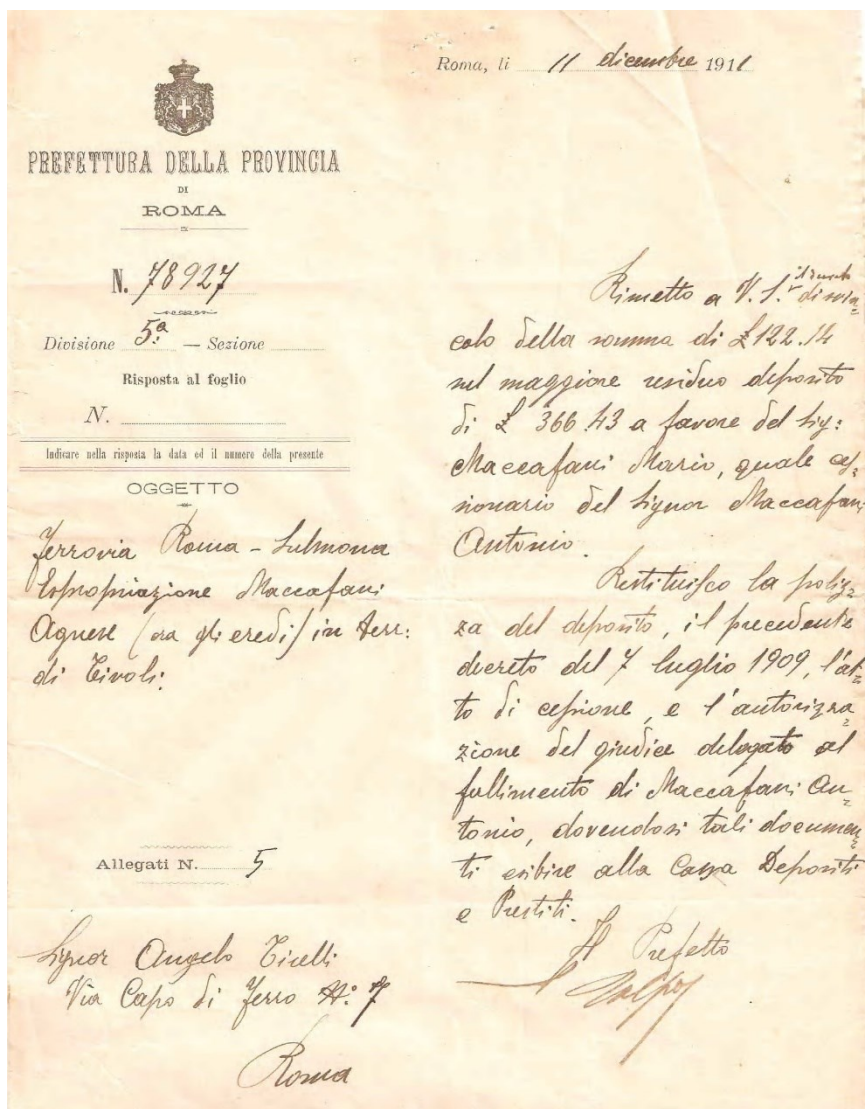 PREFETTURA DELLA PROVINCIA
DI
ROMA
N. 78927
Divisione 5ª — Sezione
Risposta al foglio
N.
Indicare nella risposta la data ed il numero della presente
OGGETTO
Ferrovia Roma - Sulmona
Espropriazione Maccafani
Agnese (ora gli eredi) in terr:
di Tivoli.
Allegati N. 5
Signor Angelo Tirelli
Via Capo di Ferro Nº. 7
Roma
Roma, li 11 dicembre 1911
Rimetto a V. S. il di svin=
colo della somma di £ 122.14
sul maggiore residuo deposito
di £ 366.43 a favore del Sig:
Maccafani Mario, quale ces=
sionario del Signor Maccafani
Antonio.
Restituisco la poliz=
za del deposito, il precedente
decreto del 7 luglio 1909, l'at=
to di cessione, e l'autorizza=
zione del giudice delegato al
fallimento di Maccafani An=
tonio, dovendosi tali documen=
ti esibire alla Cassa Depositi
e Prestiti.
Il Prefetto